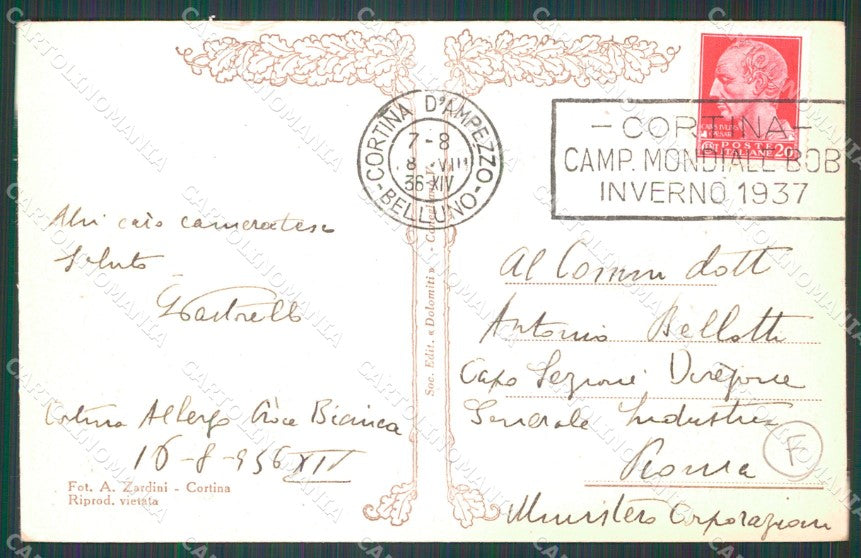 CORTINA D'AMPEZZO
7-8
8 VIII
36 XIV
-BELLUNO-
POSTE
ITALIANE 20
- CORTINA -
CAMP. MONDIALE BOB
INVERNO 1937
caro cameratesco
Saluto
Cortina Albergo Croce Bianca
16-8-936 XIV
Fot. A. Zardini - Cortina
Riprod. vietata
Soc. Edit. «Dolomiti» -
Al Comm dott
Antonio Bellotti
Capo Sezione Direzione
Generale Industria
Roma
Ministero Corporazioni
F
CARTOLINOMANIA